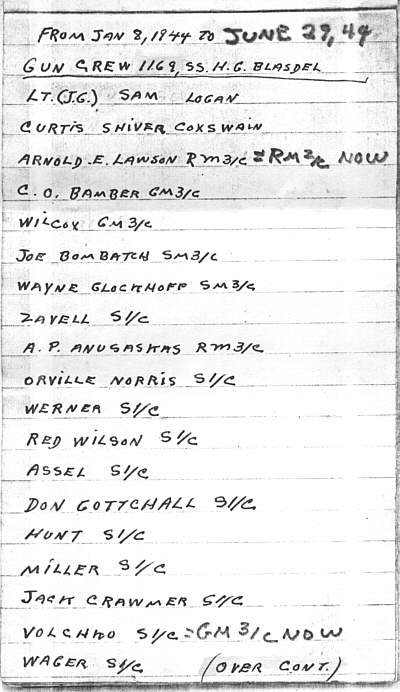 FROM JAN 8, 1944 TO JUNE 29, 44
GUN CREW 1169, SS. H.G. BLASDEL
LT. (J.G.) SAM LOGAN
CURTIS SHIVER COXSWAIN
ARNOLD E. LAWSON RM3/C = RM2/C NOW
C.O. BAMBER GM3/C
WILCOX GM3/C
JOE BOMBATCH SM3/C
WAYNE GLOCKHOFF SM3/C
ZAVELL S1/C
A.P. ANUSASKAS RM3/C
ORVILLE NORRIS S1/C
WERNER S1/C
RED WILSON S1/C
ASSEL S1/C
DON GOTTCHALL S1/C
HUNT S1/C
MILLER S1/C
JACK CRAWMER S1/C
VOLCHKO S1/C = GM3/C NOW
WAGER S1/C (OVER CONT.)